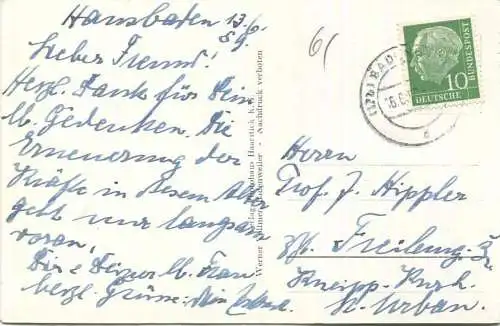 Hausbaden 13./6.
59.
Lieber Freund!
Herzl. Dank für Dein
lb. Gedenken. Die
Erneuerung der
Kräfte in diesem Alter
geht nur langsam
voran,
Dir u Deiner lb. Frau
herzl. Grüsse: Dein
Nachdruck verboten
Werner
6
BAD
DEUTSCHE
BUNDESPOST
10
Herrn
Prof. J. Hippler
Freiburg
Kneipp-Kurh.
St. Urban.